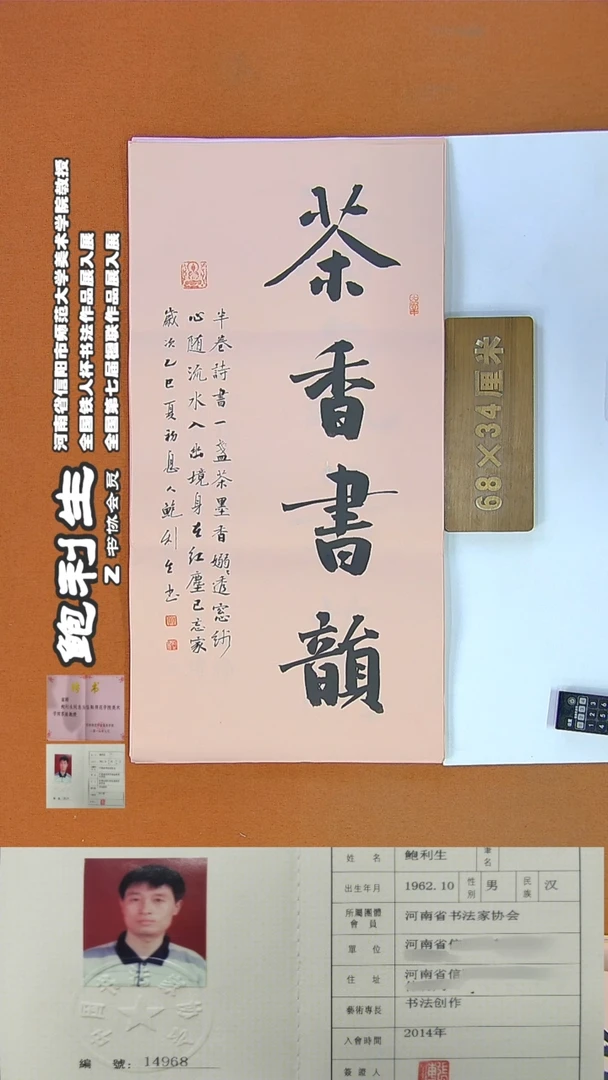 茶香書韻
半卷詩書一盏茶墨香嫋透窓纱
心随流水入幽境身在红塵已忘家
歲次乙巳夏初息人鲍利生书
68×34厘米
河南省信阳市师范大学美术学院教授
全国铁人杯书法作品展入展
全国第七届楹联作品展入展
鲍利生
Z书协会员
姓名 鲍利生 筆名
出生年月 1962.10 性别 男 民族 汉
所屬團體會員 河南省书法家协会
單位 河南省信
住址 河南省信
藝術專長 书法创作
入會時間 2014年
簽證人
編號：14968